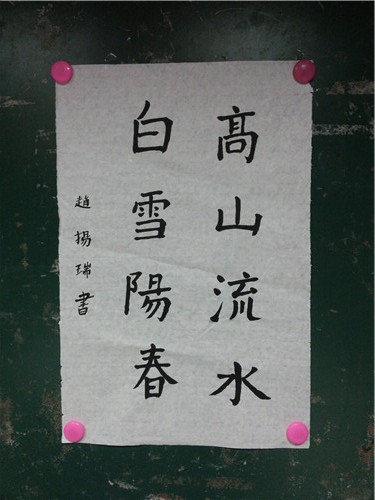 髙山流水
白雪陽春
趙揚瑞書